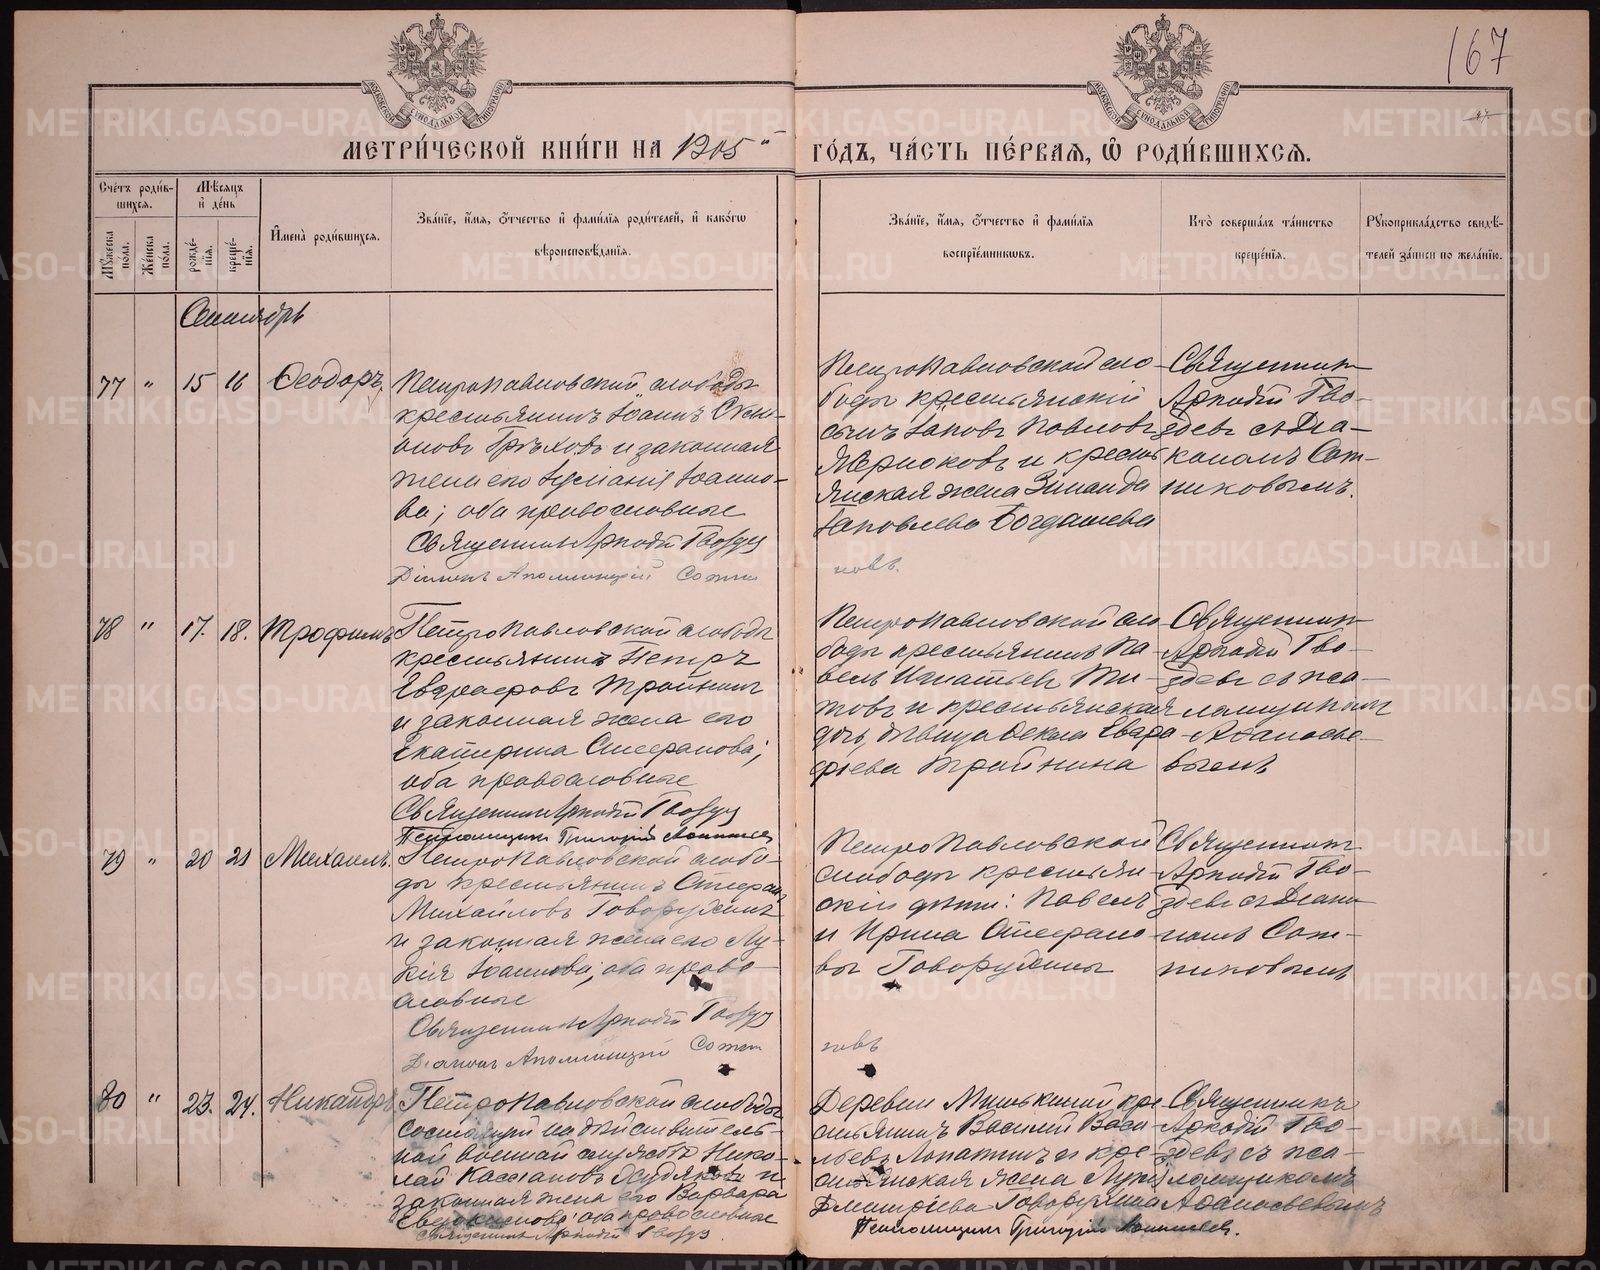 167
МЕТРИ́ЧЕСКОЙ КНИ́ГИ НА 1905 ГО́ДЪ, ЧА́СТЬ ПЕ́РВАЯ, Ѽ РОДИ́ВШИХСЯ.
Сче́тъ роди́в-
шихся.
Мꙋ́жеска по́ла.
Же́нска по́ла.
Мѣ́сяцъ
и҆ де́нь
рожде́-
нїя.
креще́-
нїя.
И҆мена̀ роди́вшихся.
Зва́нїе, и҆́мя, ѻ҆́тчество и҆ фами́лїя роди́телей, и҆ како́гѡ
вѣроисповѣ́данїя.
Зва́нїе, и҆́мя, ѻ҆́тчество и҆ фами́лїя
воспрїе́мникѡвъ.
Кто̀ соверша́лъ та́инство
креще́нїя.
Рꙋкоприкла́дство свидѣ́-
телей за́писи по жела́нїю.
Сентябрь
77 " 15 16 Ѳеодоръ
Петропавловской слободы
крестьянинъ Іоаннъ Сте-
оновъ Грѣховъ и законная
жена его Іоанно-
ва; оба православные
Священникъ Аркадій Гвоздев
Діаконъ Аполлинарій Сотни
ковъ.
Петропавловской сло-
боды крестьянскій
сынъ Іаковъ Павловъ
и кресть
янская жена Зинаида
Іаковлева Богдашева
Священник
Аркадій Гво-
здевъ съ Діа-
кономъ Сот-
никовымъ.
78 " 17. 18. Трофимъ
Петропавловской слободы
крестьянинъ Петръ
Евграфовъ Трайнинъ
и законная жена его
Екатерина Стефанова;
оба православные
Священникъ Аркадій Гвоздев
Псаломщикъ Григорій
Петропавловской сло
боды крестьянинъ Па-
велъ Игнатьевъ Ти-
товъ и крестьянская
дочь, дѣвица Ѳекла Евгра
фьева Трайнина
Священник
Аркадій Гво-
здевъ съ пса-
ломщикомъ
Аѳанасье-
вымъ
79 " 20 21 Михаилъ.
Петропавловской слобо-
ды крестьянинъ Стефанъ
Михайловъ Говорухинъ
и законная жена его Лу-
кія Іоаннова; оба право-
славные
Священникъ Аркадій Гвоздев
Діаконъ Аполлинарій Сотни
ковъ
Петропавловской
слободы крестьян-
скіи дѣти: Павелъ
и Ирина Стефано
вы Говорухины
Священник
Аркадій Гво-
здевъ съ Діако
номъ Сот-
никовымъ
80 " 23. 24. Никандръ
Петропавловской слободы
состоящій на дѣйствитель-
ной военной службѣ Нико-
лай Кассіановъ Худяковъ и
законная жена его Варвара
Евдокимова; оба православные
Священникъ Аркадій Гвоздев.
Деревни Мишькиной кре
стьянинъ Василій Васи
льевъ Лопатинъ и кре-
стьянская жена Лукія
Димитріева Говорухина
Священникъ
Аркадій Гво-
здевъ съ пса-
ломщикомъ
Аѳанасьевымъ
Псаломщикъ Григорій
METRIKI.GASO-URAL.RU